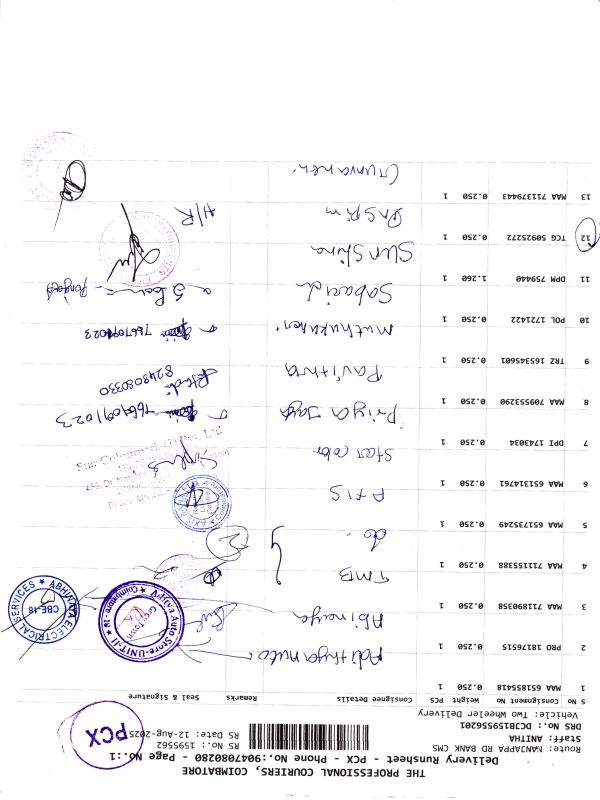 THE PROFESSIONAL COURIERS, COIMBATORE
Delivery Runsheet - PCX - Phone No.:9047080280 - Page No.:1
Route: NANJAPPA RD BANK CMS
Staff: ANITHA
DRS No.: DC3B159556201
Vehicle: Two Wheeler Delivery
RS No.: 1595562
RS Date: 12-Aug-2025
PCX
S No Consignment No Weight PCS Consignee Details Remarks Seal & Signature
1 MAA 651855418 0.250 1 Adithya auto
2 PRO 18176515 0.250 1 Abinaya
3 MAA 711890358 0.250 1 TMB
4 MAA 711155388 0.250 1 do.
5 MAA 651735249 0.250 1 ATIS
6 MAA 651314761 0.250 1 Star color
7 DPI 1743034 0.250 1 Priya 7667091023
8 MAA 709553290 0.250 1 Pavithra 8248080330
9 TRZ 165345601 0.250 1 Muthukumar 7667091023
10 POL 1721422 0.250 1 Sabarish
11 DPM 759440 1.260 1 Sun Shine
12 TCG 50925272 0.250 1 Dr. Spim H/R
13 MAA 711379443 0.250 1 Gunvanen
Aditya Auto Store-UNIT-II
Coimbatore-18
ABHINAYA ELECTRICAL SERVICES
CBE-18